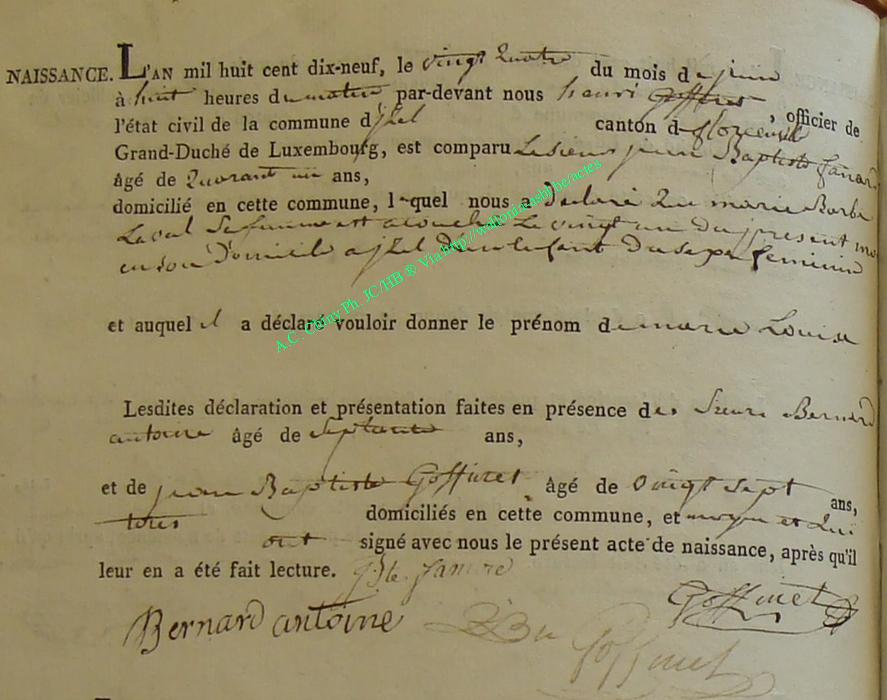 NAISSANCE. L'AN mil huit cent dix-neuf, le vingt Quatre du mois de juin
à huit heures du matin par-devant nous henri Goffinet, officier de
l'état civil de la commune d'jzel canton de florenville
Grand-Duché de Luxembourg, est comparu Le sieur jean Baptiste
âgé de Quarant un ans,
domicilié en cette commune, lequel nous a Declaré Que marie Barbe
Laval Sa femme est acouchée Le vingt un du present mois
en son Domicile a jzel D'un enfant Du sexe feminin
et auquel il a déclaré vouloir donner le prénom de marie Louise
Lesdites déclaration et présentation faites en présence des Sieurs Bernard
antoine âgé de Septante ans,
et de jean Baptiste Goffinet âgé de vingt sept ans,
tous domiciliés en cette commune, et qui
ont signé avec nous le présent acte de naissance, après qu'il
leur en a été fait lecture.
Goffinet
Bernard antoine
Goffinet
A.C. Chiny Ph. JC/HB ® Via http://wallonica.ash.be/actes